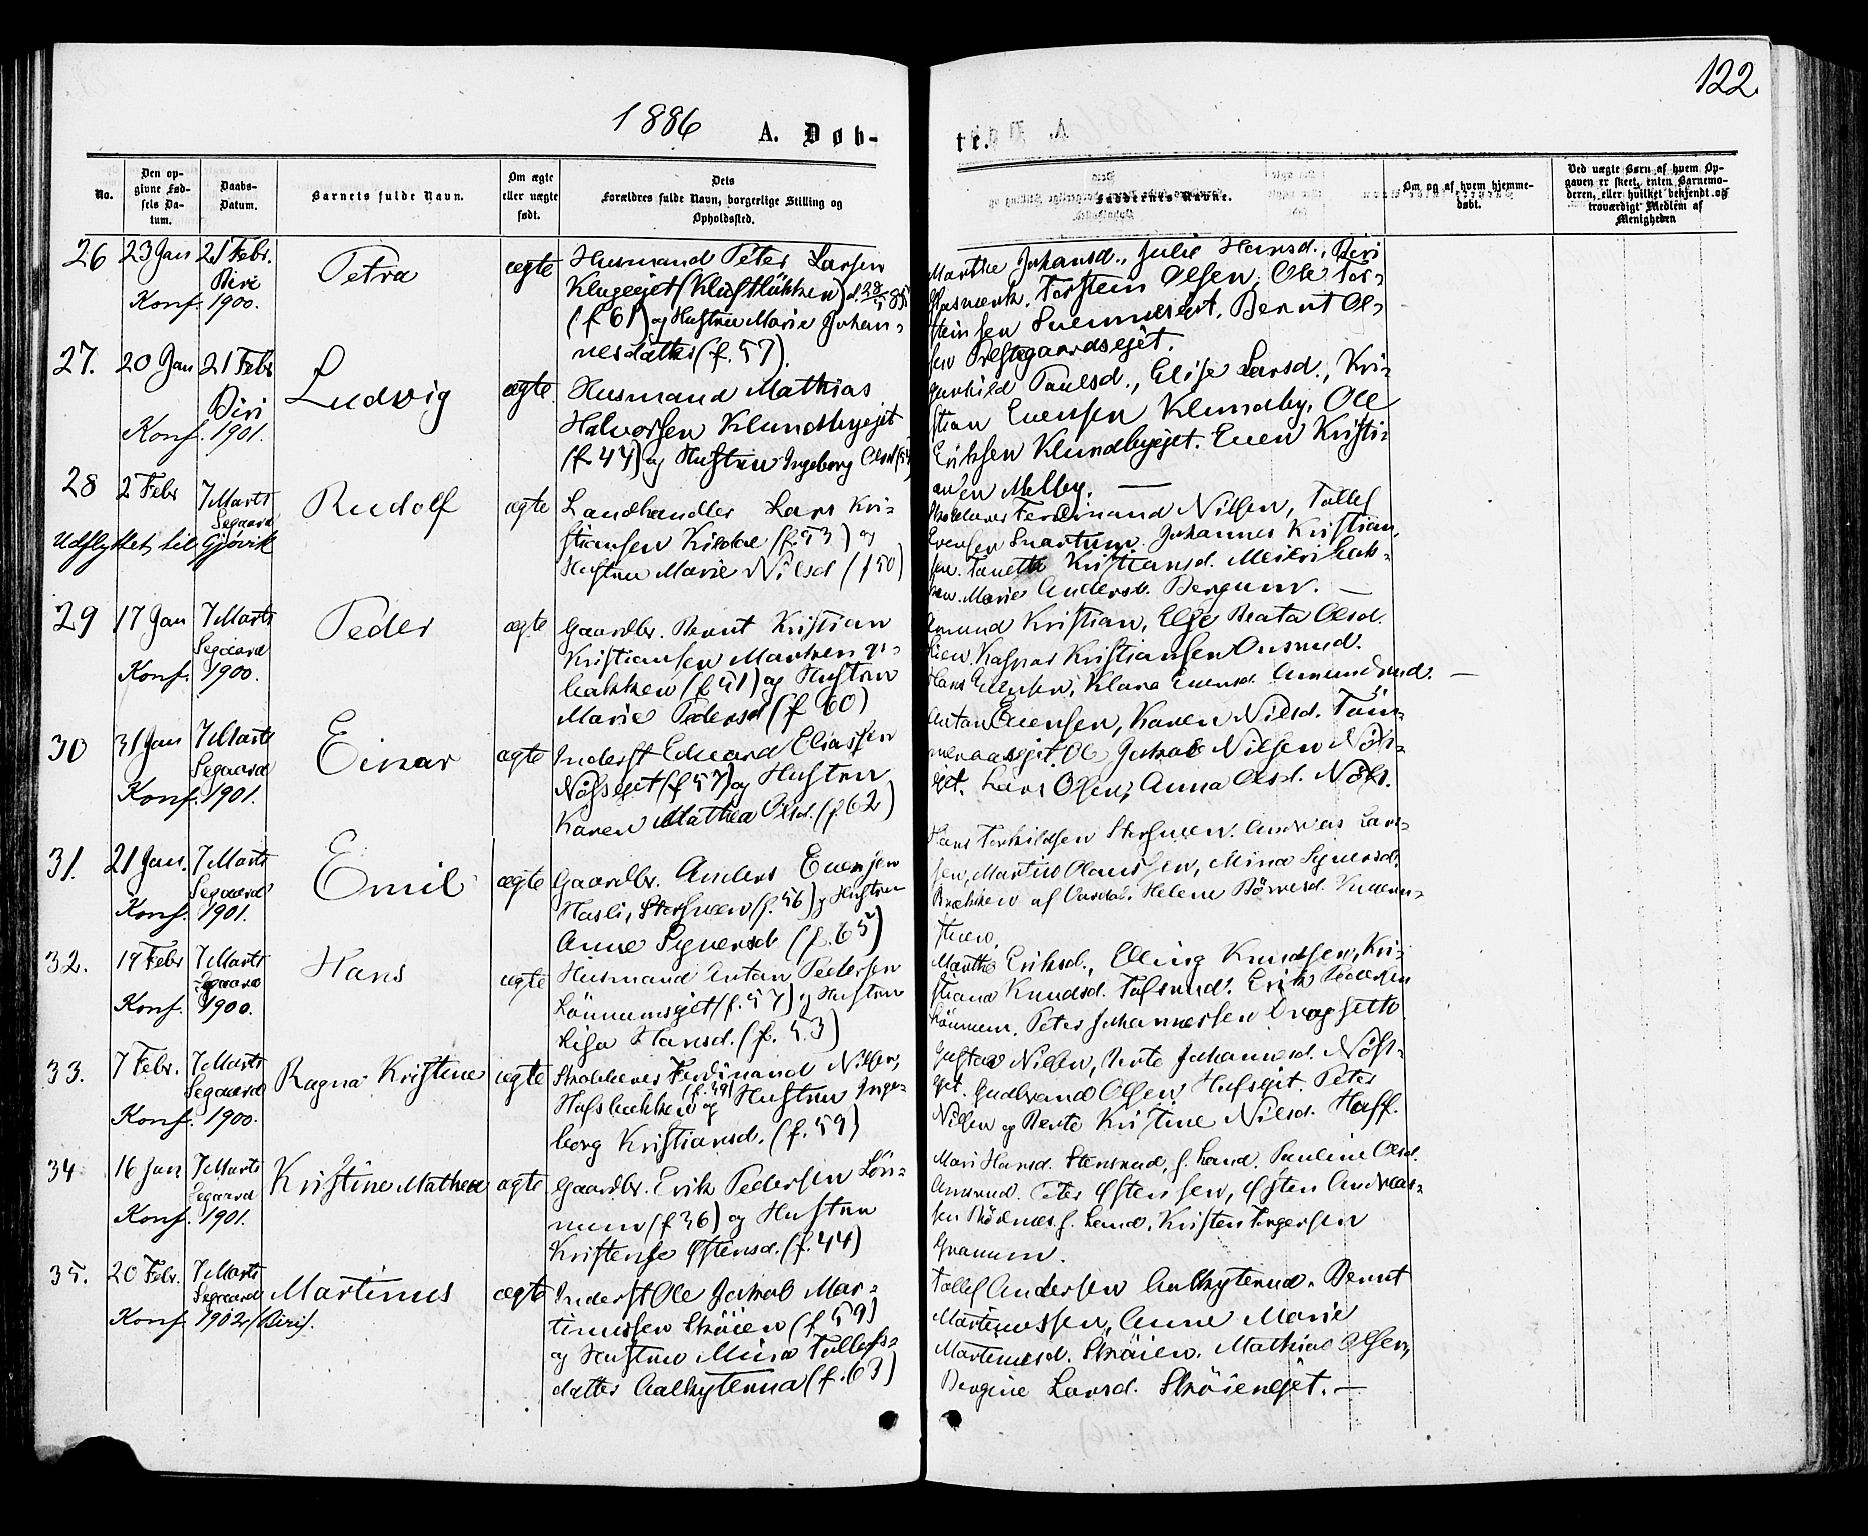 122.
1886 A. Døb- te.
No.
Den op-
givne Fød-
sels Da-
tum.
Daabs-
Datum.
Barnets fulde Navn.
Om ægte
eller uægte
født.
Dets
Forældres fulde Navn, borgerlige Stilling og
Opholdssted.
Faddernes Navne.
Om og af hvem hjemme-
døbt.
Ved uægte Børn af hvem Op-
gaven er skeet, enten Barnemo-
deren, eller hvilket bekjendt og
troværdigt Medlem af
Menigheden
26 23 Jan 21 Febr.
Biri
Konf. 1900.
Petra
ægte
Husmand Peter Larsen
(f 61) og Hustru Marie Johan-
nesdatter (f. 57).
Marthe Johansd., Julie Hansd., Biri
Torstein Olsen, Ole Tor-
steinsen Bernt Ol-
sen Prestegaardsejet.
27. 20 Jan 21 Febr
Biri
Konf. 1901.
Ludvig
ægte
Husmand Mathias
Halvorsen Klundbyejet
(f. 47) og Hustru Ingeborg Olsd
Gunhild Paulsd., Elise Larsd., Kri-
stian Evensen Klundby, Ole
Eriksen Klundbyejet. Even Kristi-
ansen Melby. —
28 2 Febr 7 Marts
Segaard
Udflyttet til Gjøvik
Rudolf
ægte
Landhandler Lars Kri-
stiansen (f. 53) og
Hustru Marie Nilsd (f 50)
Ferdinand Nilsen, Tollef
Evensen Snartum. Johannes Kristian-
sen. Kristiansd.
Marie Andersd. Bergum. —
29 17 Jan 7 Marts
Segaard
Konf. 1900.
Peder
ægte
Gaardbr. Bernt Kristian
Kristiansen
bakken (f 51) og Hustru
Marie Pedersd (f 60)
Amund Kristian, Else Beata Olsd.
Lien, Kaspar Kristiansen Onsrud.
Hans Klara Evensd. Amundrud. —
30 31 Jan 7 Marts
Segaard
Konf. 1901.
Einar
ægte
Inderst Edvard Eliassen
Nøssejet (f 57) og Hustru
Karen Mathea Olsd. (f. 62)
Anton Evensen, Karen Nilsd.
Ole Jakob Nilsen Nøss-
ejet. Lars Olsen, Anna Olsd. Nøss.
31. 21 Jan. 7 Marts
Segaard
Konf. 1901.
Emil
ægte
Gaardbr. Anders Evensen
Hasli, (f. 56) og Hustru
Anne Syversd (f. 65)
Hans Torkildsen Andreas Lar-
sen, Martin Olaussen, Mina Syversd.
Brækken af Vardal. Helene
32. 19 Febr 7 Marts
Segaard
Konf. 1900.
Hans
ægte
Husmand Anton Pedersen
Lønnumsejet (f. 57) og Hustru
Lisa Hansd. (f. 53)
Marthe Eriksd., Elling Knudsen, Kri-
stiane Knudsd. Erik Pedersen
Lønnum, Peter Johannessen
33. 7 Febr. 7 Marts
Segaard
Konf. 1900.
Ragna Kristine
ægte
Skolelærer Ferdinand Nilsen,
(f. 59)
Hofsbakken og Hustru Inge-
borg Kristiansd. (f. 59)
Gustav Nilsen, Berte Johannesd. Nøss-
ejet. Gudbrand Olsen Hofsejet. Peter
Nilsen og Berte Kristine Nilsd. Hoff.
34 16 Jan 7 Marts
Segaard
Konf. 1901.
Kristine Mathea
ægte
Gaardbr. Erik Pedersen Løn-
num (f 36) og Hustru
Kristense Østensd. (f. 44)
Mari Hansd. Stensrud, S. Land. Pauline Olsd.
Onsrud. Peter Østensen, Østen Andreas-
sen S. Land, Kristen Torgersen
Granum.
35. 20 Febr. 7 Marts
Segaard
Konf. 1902 (Biri).
Martinus
ægte
Inderst Ole Jakob Mar-
tinussen Skøien (f 59)
og Hustru Mina Tollefs-
datter (f. 63)
Tollef Andersen Bernt
Martinussen, Anne Marie
Martinusd. Skøien. Mathias Olsen,
Bergine Larsd. Skøienejet. —